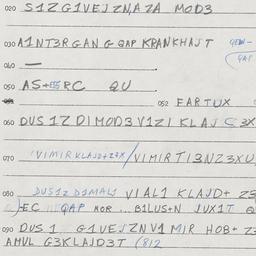 020 S1Z G1VEJZNAZA MOD3
030 A1NT3RGANG GAP KRANKHAJT
040 —
050 AS+ RC QU
052 FARTUX
060 DUS1Z D1MOD3V1Z1 KLAJ 3X
070 V1M1RKLAJD+Z3X/V1M1RT13NZ3XU
080 DUS1Z D1MAL1 V1AL1 KLAJD+ ZS
)EC GAP MOR .. B1LUS+N JUX1T
090 DUS1 G1VEJZNV1 M1R HOB+ Z3
AMUL G3KLAJD3T (812